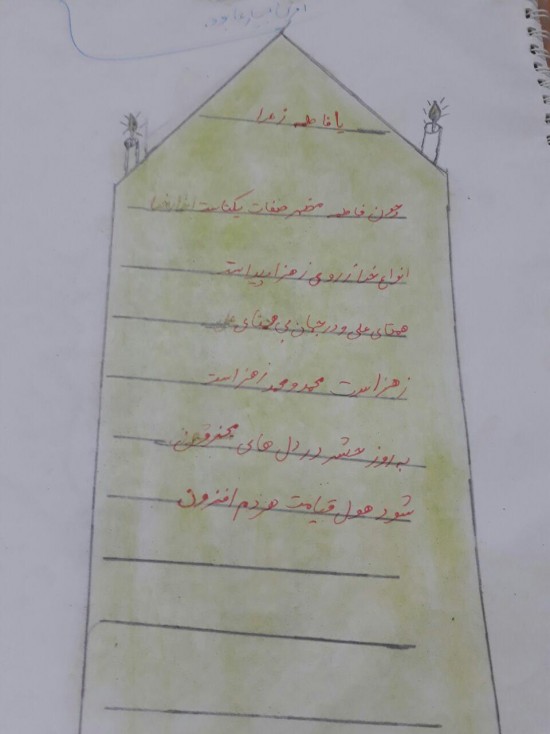 یا فاطمه زهرا
چون فاطمه مظهر صفات یکتاست
انواع خدا ز روی زهرا پیداست
همتای علی و در جهان بی همتای علی
زهراست محمد و محمد زهراست
به روز حشر در دل های محزون
شود هول قیامت هردم افزون